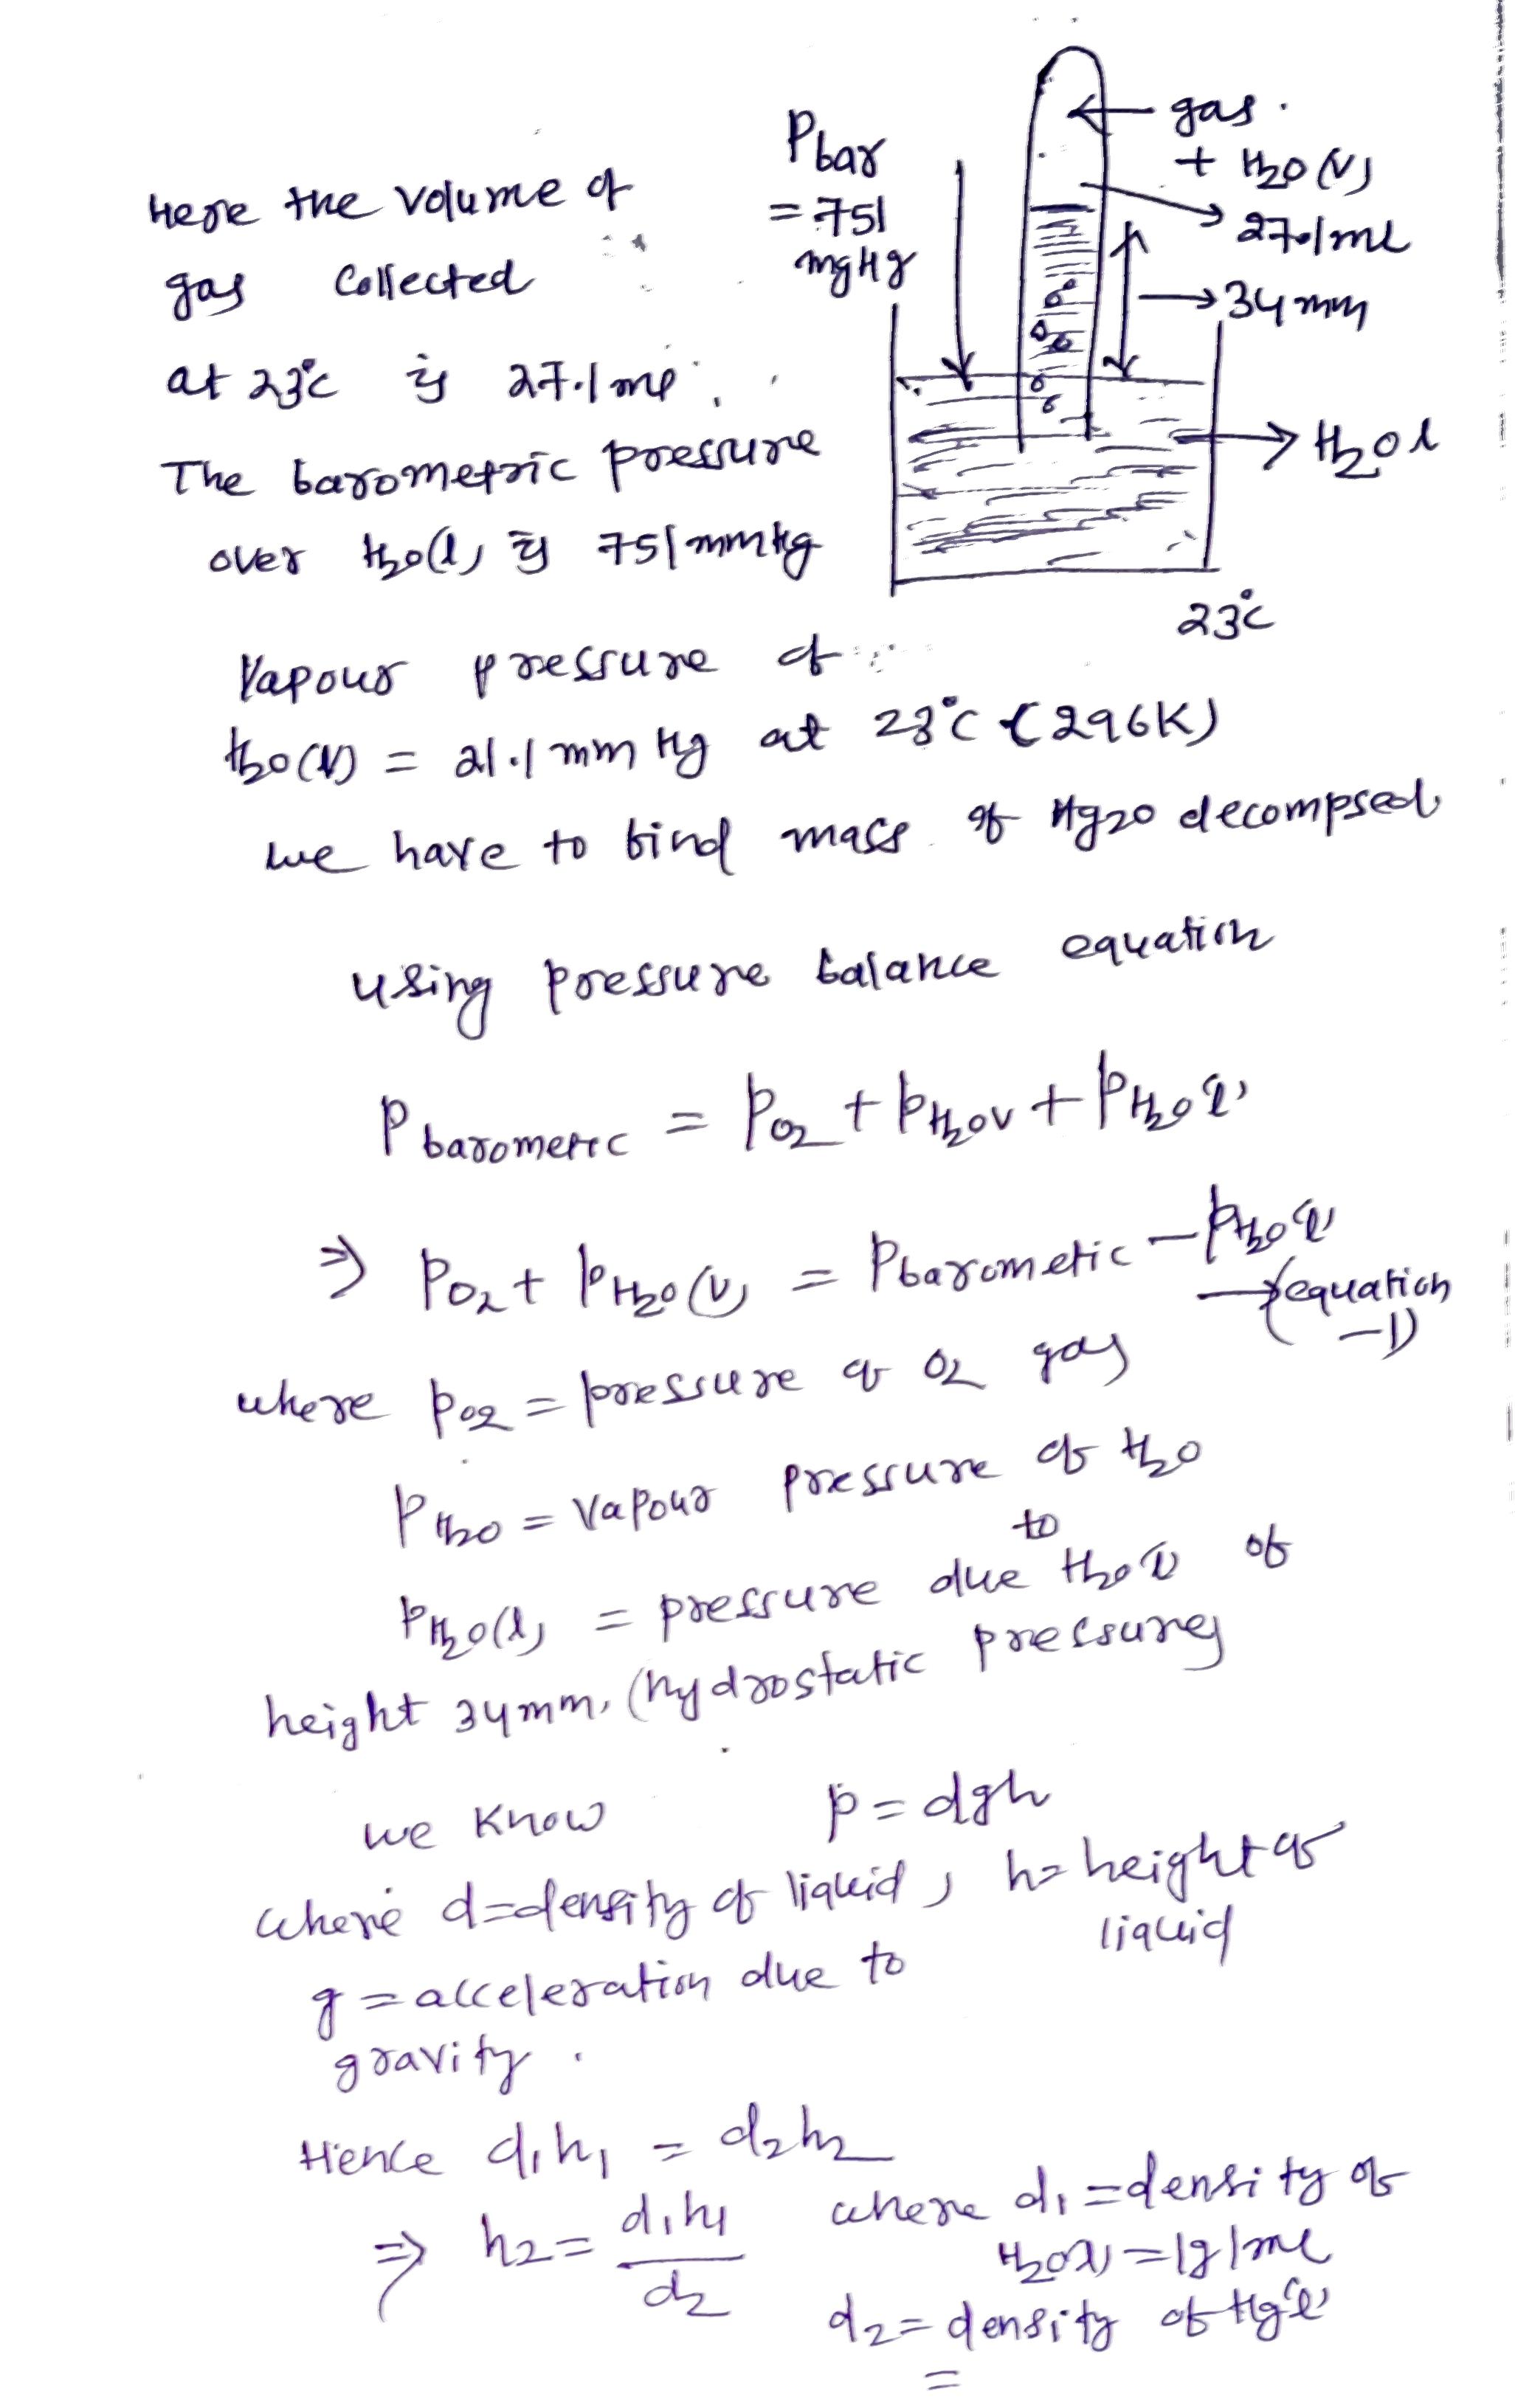 Here the volume of
gas collected
at 23°C is 27.1 ml.
The barometric pressure
over H2O(l) is 751 mmHg
Pbar
= 751
mgHg
gas.
+ H2O(v)
27.1ml
34 mm
H2O l
23°C
Vapour pressure of
H2O(v) = 21.1 mm Hg at 23°C (296K)
we have to find mass of Hg2O decompsed
using pressure balance equation
P barometric = PO2 + PH2OV + PH2O(l)
⇒ PO2 + PH2O(v) = Pbarometic - PH2O(l)
→ (equation
-1)
where PO2 = pressure of O2 gas
PH2O = vapour pressure of H2O
PH2O(l) = pressure due to H2O(l) of
height 34mm, (hydrostatic pressure)
we know p = dgh
where d = density of liquid, h = height of
liquid
g = acceleration due to
gravity.
Hence d1h1 = d2h2
⇒ h2 = d1h1 / d2
where d1 = density of
H2O(l) = 1g/ml
d2 = density of Hg(l)
=